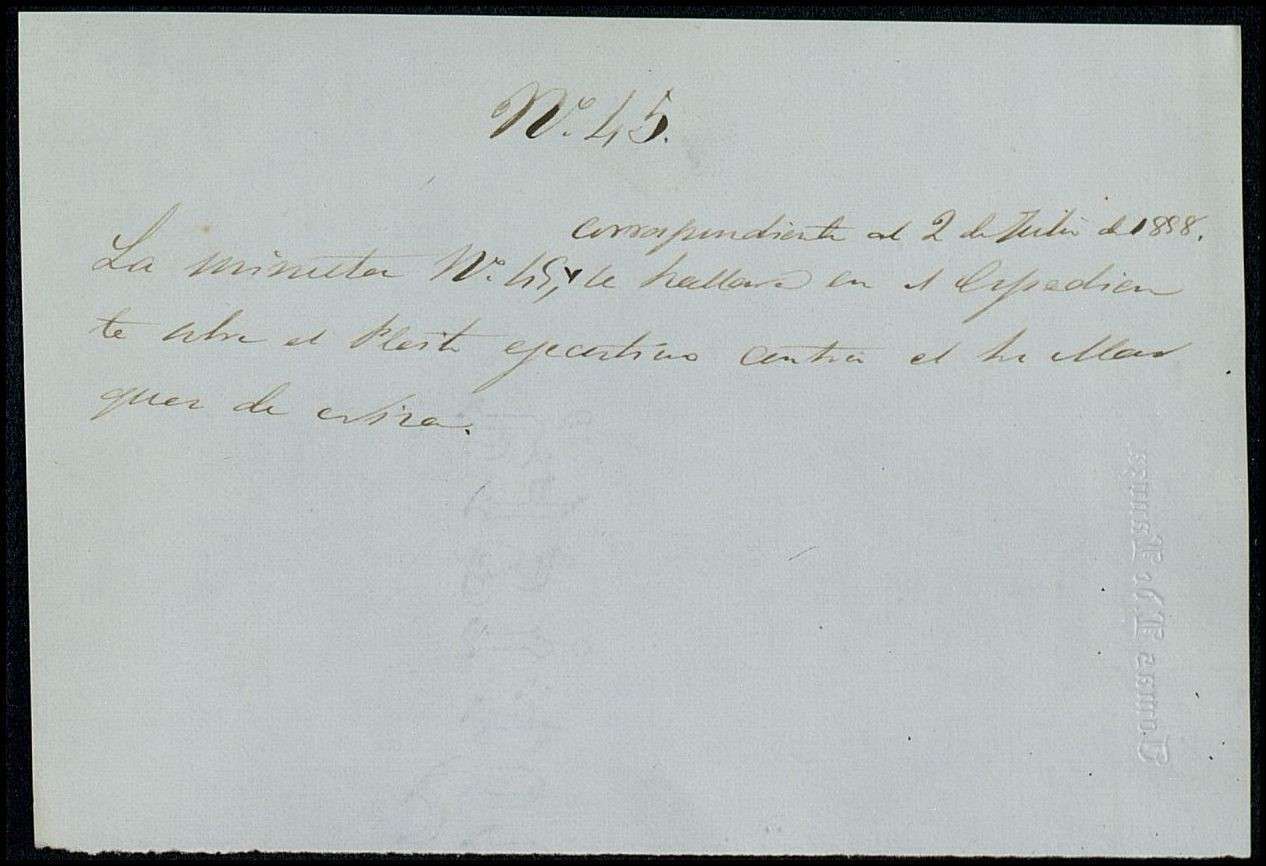 Nº. 45.
correspondiente al 2 de Julio de 1858.
La minuta Nº. 45, se hallara en el Espedien
te sobre el Pleito ejecutivo contra el Sr Mar
quez de